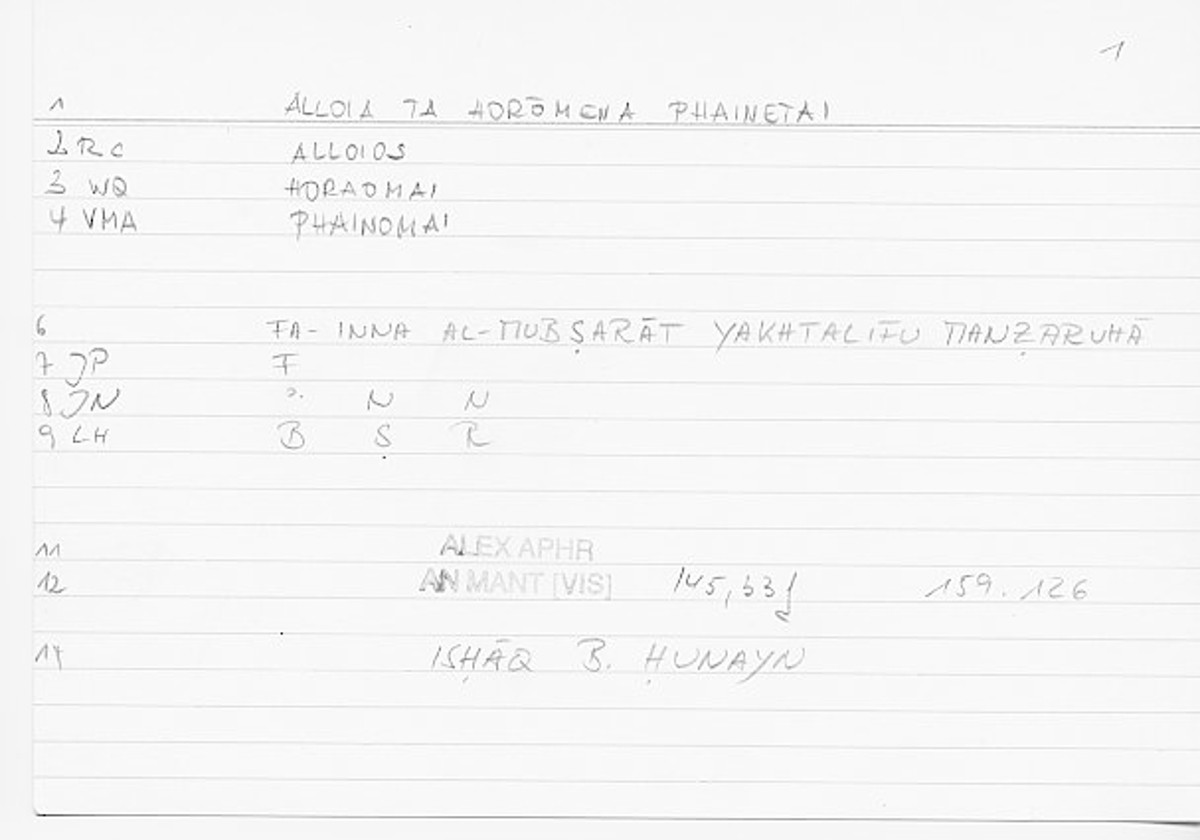 1
1 ALLOIA TA HORŌMENA PHAINETAI
2 RC ALLOIOS
3 WQ HORAOMAI
4 VMA PHAINOMAI
6 FA-INNA AL-MUBṢARĀT YAKHTALIFU MANẒARUHĀ
7 JP F
8 JN ʾ. N N
9 LH B Ṣ R
11 ALEX APHR
12 AN MANT [VIS] 145,33f 159.126
14 ISḤĀQ B. ḤUNAYN